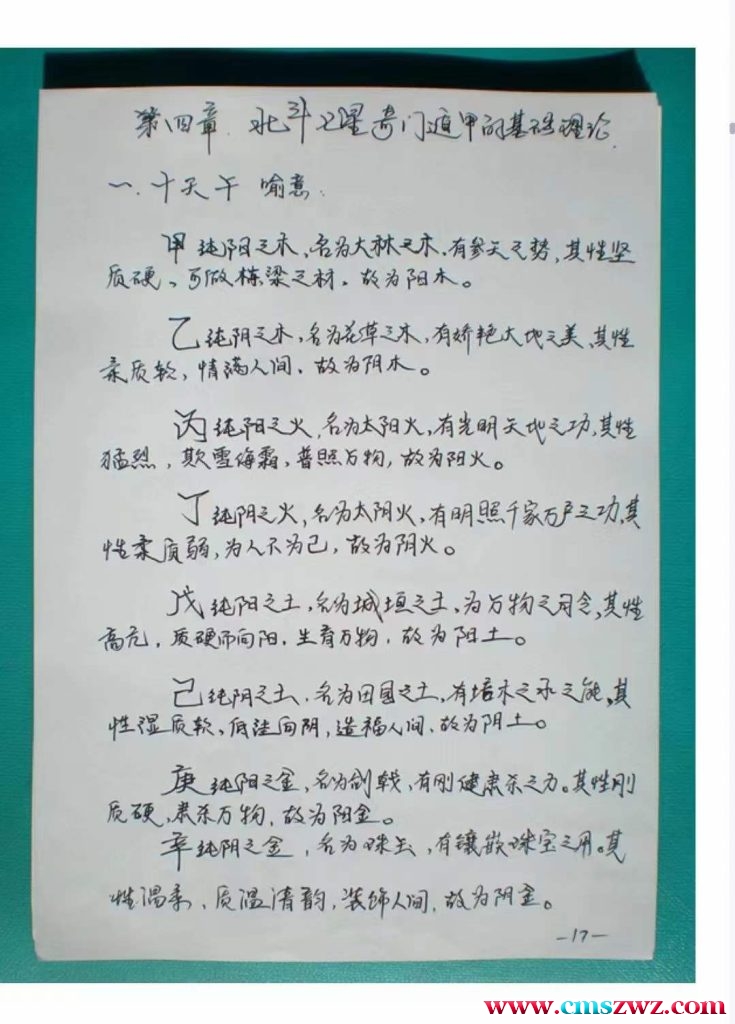 第四章、北斗七星奇门遁甲的基础理论
一、十天干 喻意:
甲 纯阳之木,名为大林之木,有参天之势,其性坚
质硬、可做栋梁之材。故为阳木。
乙 纯阴之木,名为花草之木,有娇艳大地之美,其性
柔质软,情满人间、故为阴木。
丙 纯阳之火,名为太阳火,有光明天地之功,其性
猛烈,欺雪侮霜,普照万物,故为阳火。
丁 纯阴之火,名为太阴火,有明照千家万户之功,其
性柔质弱,为人不为己,故为阴火。
戊 纯阳之土,名为城垣之土,为万物之司令,其性
高亢,质硬而向阳,生育万物,故为阳土。
己 纯阴之土、名为田园之土,有培木之水之能,其
性湿质软,低洼向阴,造福人间、故为阴土。
庚 纯阳之金,名为剑戟,有刚健肃杀之力。其性刚
质硬,肃杀万物,故为阳金。
辛 纯阴之金,名为珠玉,有镶嵌珠宝之用。其
性温柔、质温清韵,装饰人间,故为阴金。
-17-
www.cmszwz.com